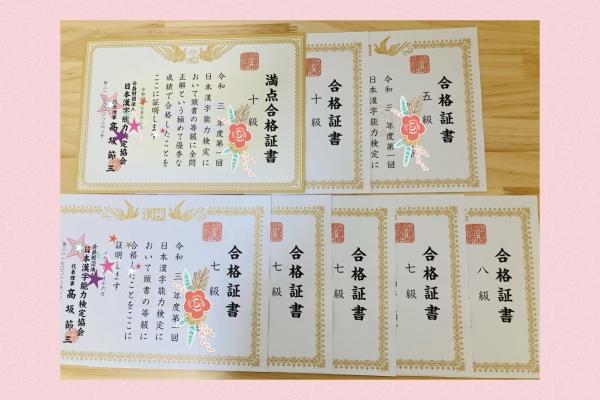 合格証書
五級
令和三年度第一回
日本漢字能力検定に
合格証書
十級
満点合格証書
十級
令和三年度第一回
日本漢字能力検定に
おいて頭書の等級に全問
正解という極めて優秀な
成績で合格したことを
ここに証明します
公益財団法人
日本漢字能力検定協会
代表理事 髙坂節三
合格証書
八級
合格証書
七級
合格証書
七級
合格証書
七級
合格証書
七級
令和三年度第一回
日本漢字能力検定に
おいて頭書の等級に
合格したことをここに
証明します
公益財団法人
日本漢字能力検定協会
代表理事 髙坂節三
漢検